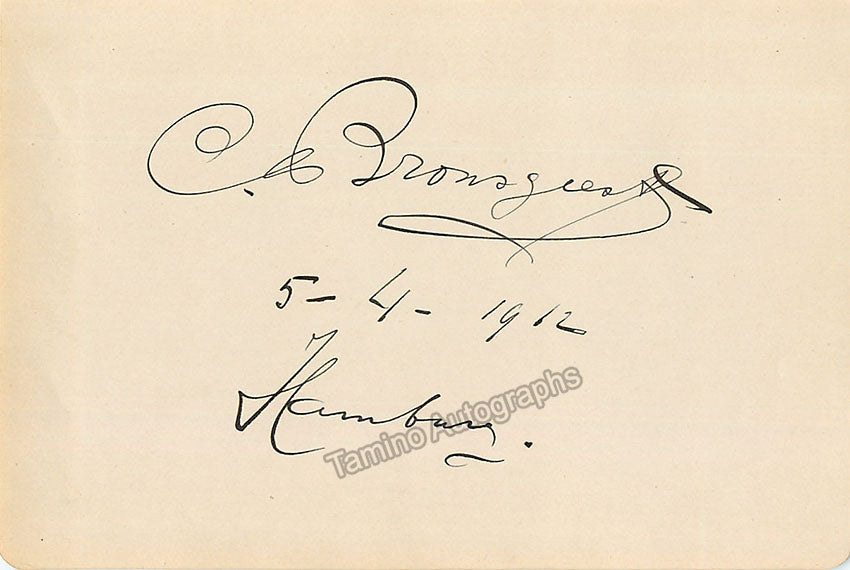 C. Bronsgeest
5 - 4 - 1912
Hamburg.
Tamino Autographs